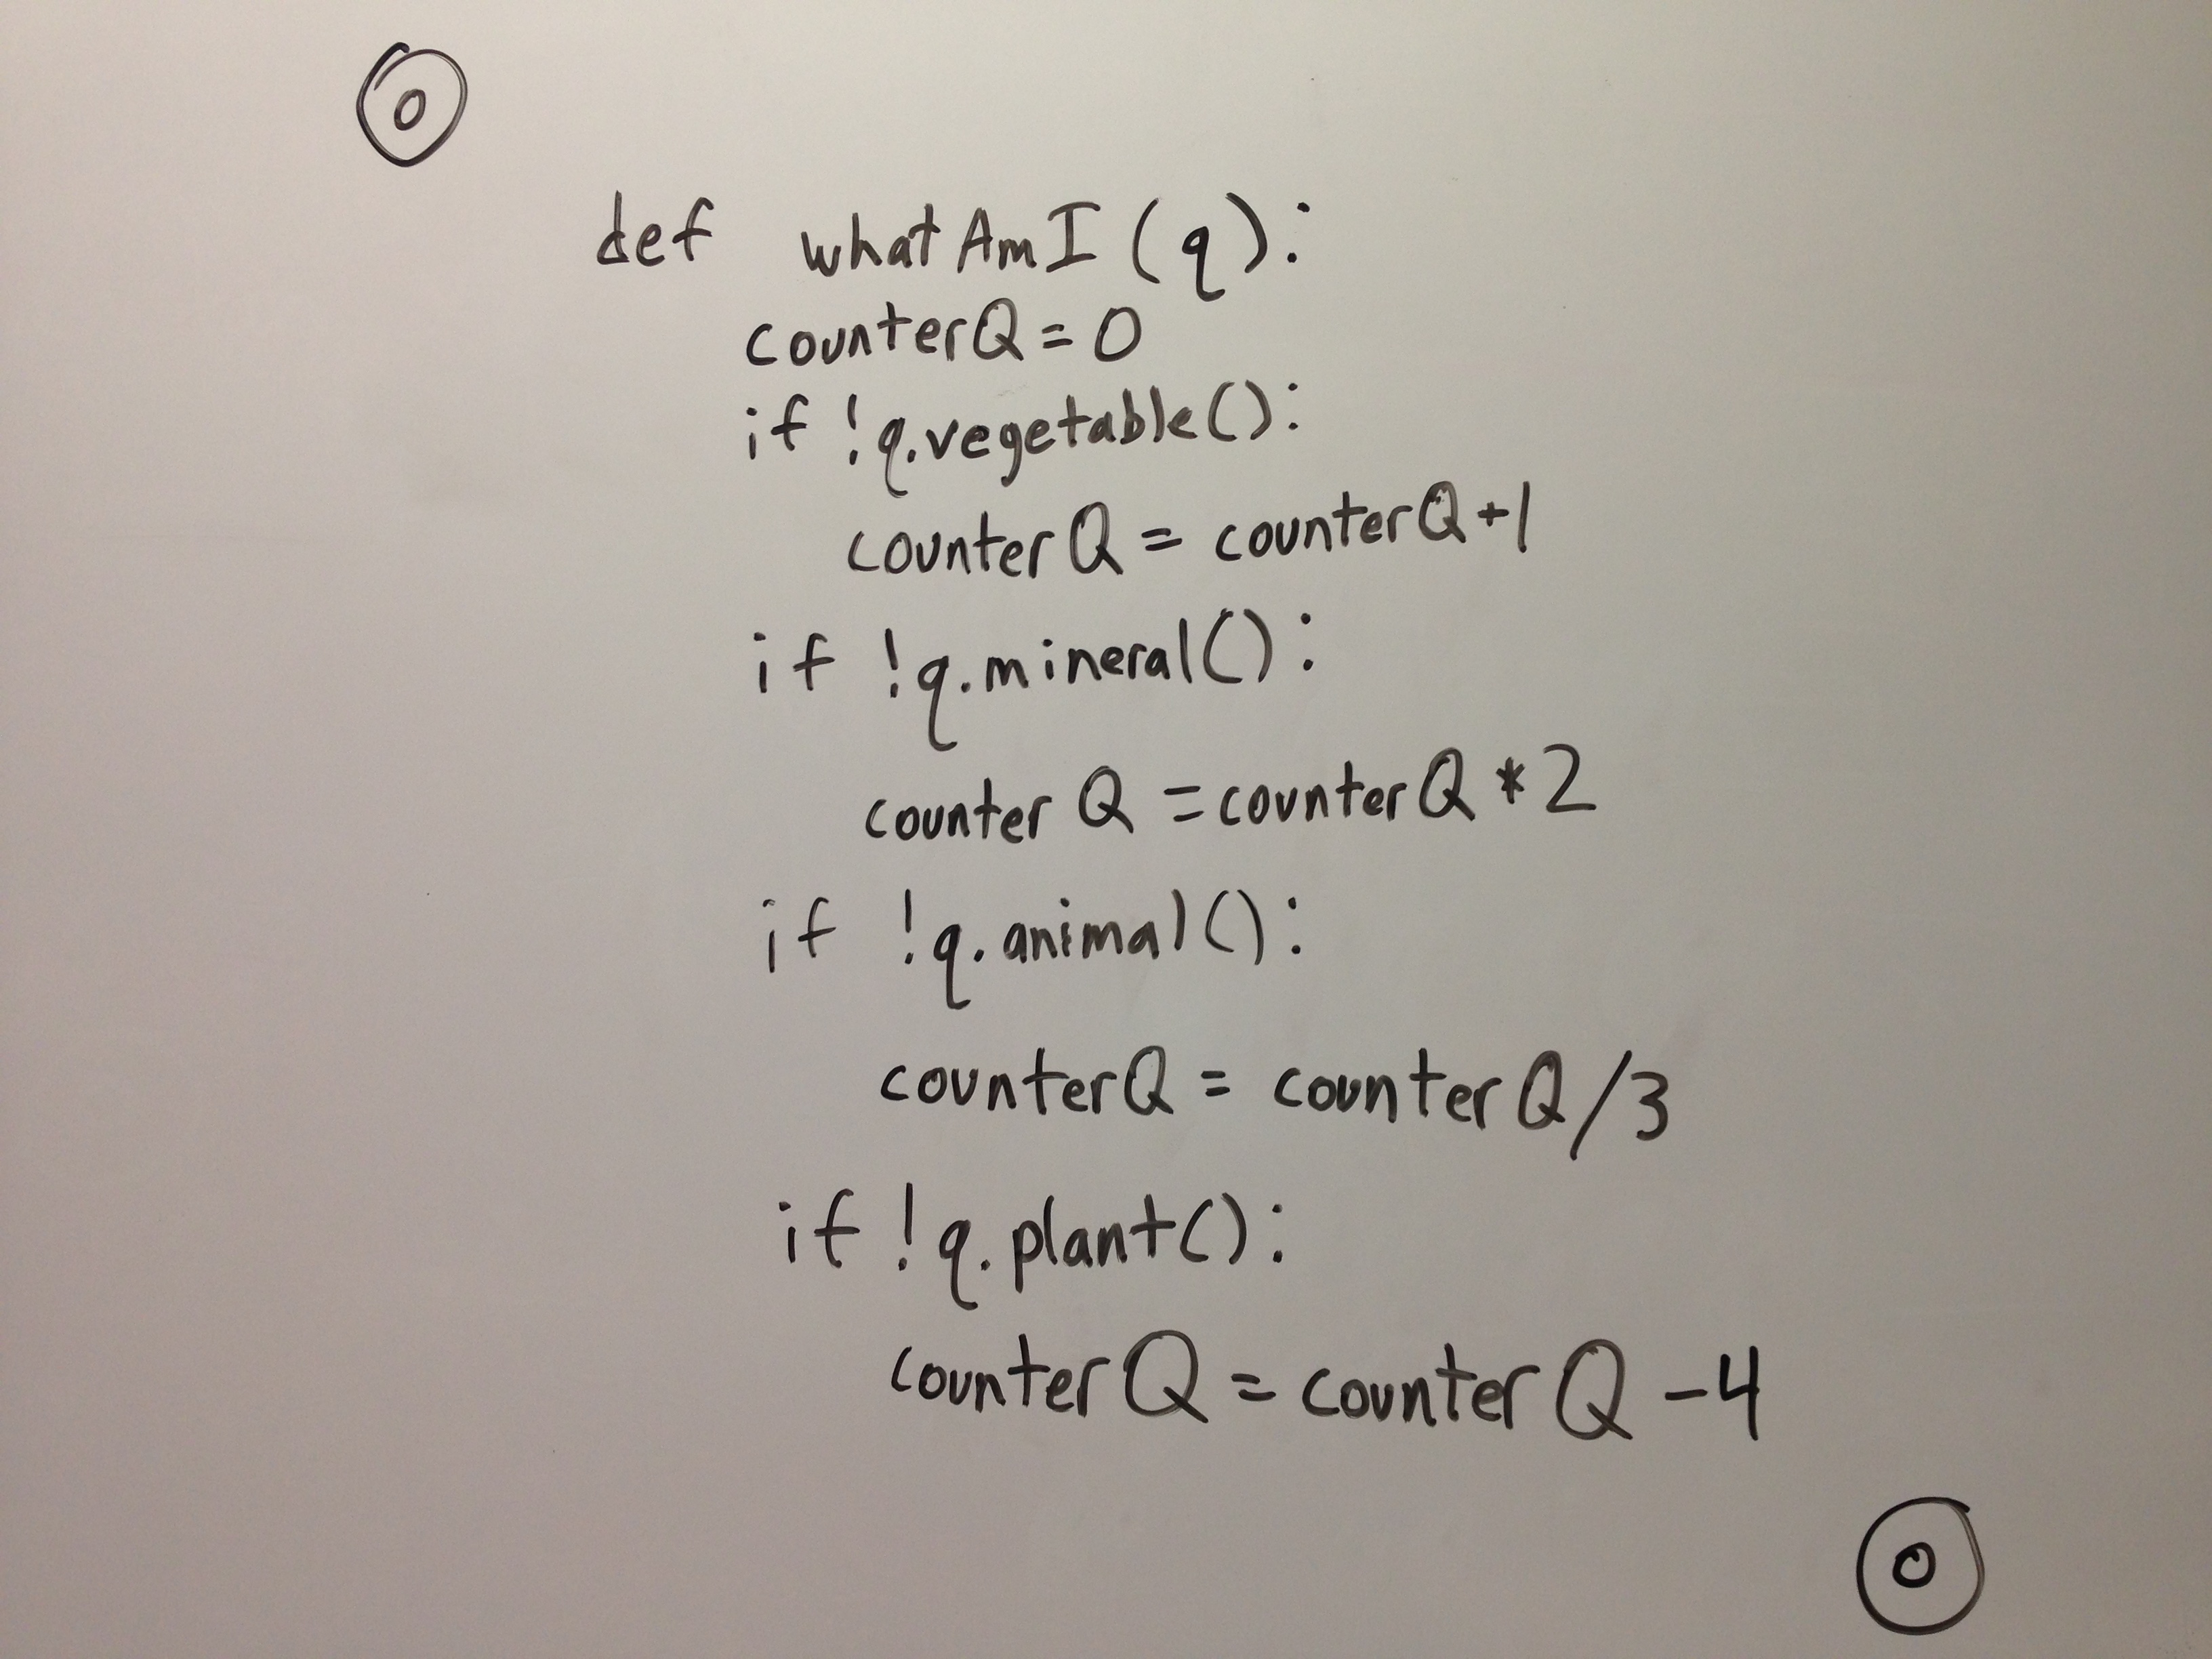 0
def whatAmI(q):
counterQ = 0
if !q.vegetable():
counterQ = counterQ+1
if !q.mineral():
counterQ = counterQ * 2
if !q.animal():
counterQ = counterQ/3
if !q.plant():
counterQ = counterQ - 4
0